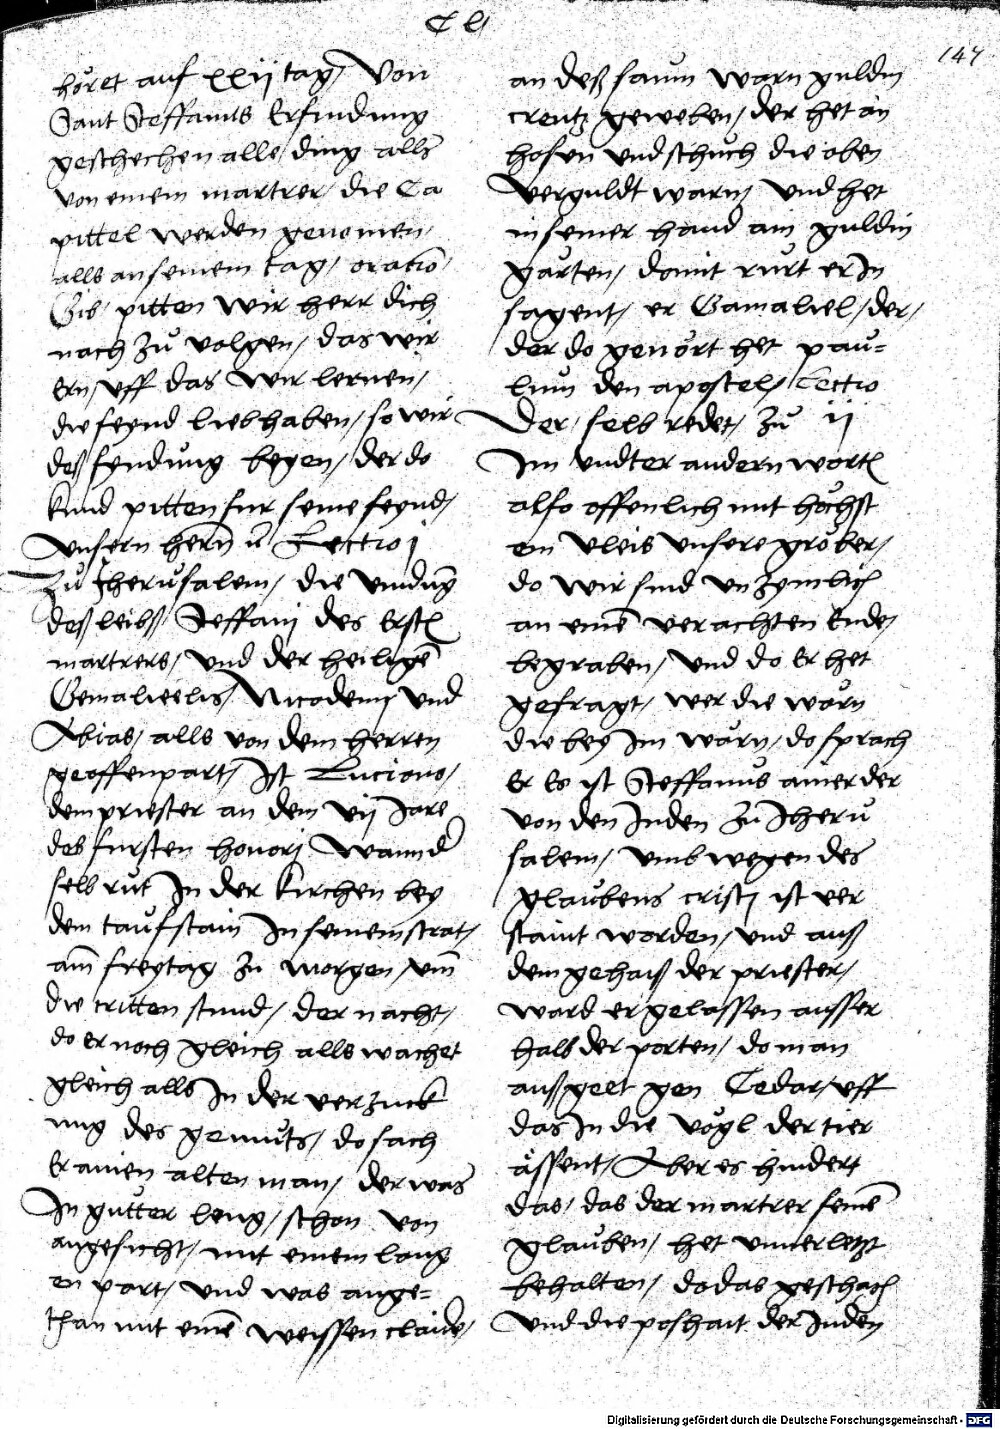 C l
147
höret auf xxij tag, Von
Sant Steffanus Erfindung
geschechen alle ding alls
von einem martrer, die Ca
pittel werden genomen,
alls an seinem tag, oratio
Gib, pitten wir herr dich
nach zu volgen, das wir
ern, uff das wir lernen,
die feynd lieb haben, so wir
deß fyndung begen, der do
kund pitten fur seine feynd,
unsern hern Lectio j
Zu Jherusalem, die vindung
deß leibß Steffanj des Erstn
martrers, und der heiligen
Gemalieelis, Nicodemj und
Abias, alls von dem herren
geoffenpart, Ist Luciano,
dem priester an dem vij Jare
des fursten honorj Wann der
selb rut In der kirchen bey
dem taufstain In seinem strat,
am freytag zu morgen, um
die tritten stund, der nacht,
do er noch gleich alls wachet
gleich alls In der verzuck
ung des gemuts, do sach
Er ainen alten man, der was
In gutter leng, schon von
angesicht, mit einem lang
en part, und was ange=
than mit einem weissen claide,
an deß saum warn guldin
creutz geweben, der het an
hosen und schuch die oben
verguldt warn, und het
in seiner hand ain guldin
garten, domit rurt er In
sagent, er Gamaliel, der,
der do genört het pau=
lum den apostel, Lectio
Der selb redet, zu ij
Im undter andern wortn
also offenlich mit höchst
em vleis unsere gröber,
do wir sind unzymlich
an einem verachten Ende,
begraben, und do Er het
gefragt, wer die wörn
die bey Im wörn, do sprach
Er Es ist Steffanus ainer der
von den Juden zu Jheru
salem, umb wegen des
glaubens cristj ist ver
staint worden, und auß
dem gehaiß der priester,
ward er gelassen ausser
halb der porten, do man
außgeet gen Cedar, uff
das In die vögl der tier
ässent, Aber es hindert
das, das der martrer seinen
glauben, het unverletzt
behalten, do das geschach
und die poshait der Juden
Digitalisierung gefördert durch die Deutsche Forschungsgemeinschaft - DFG